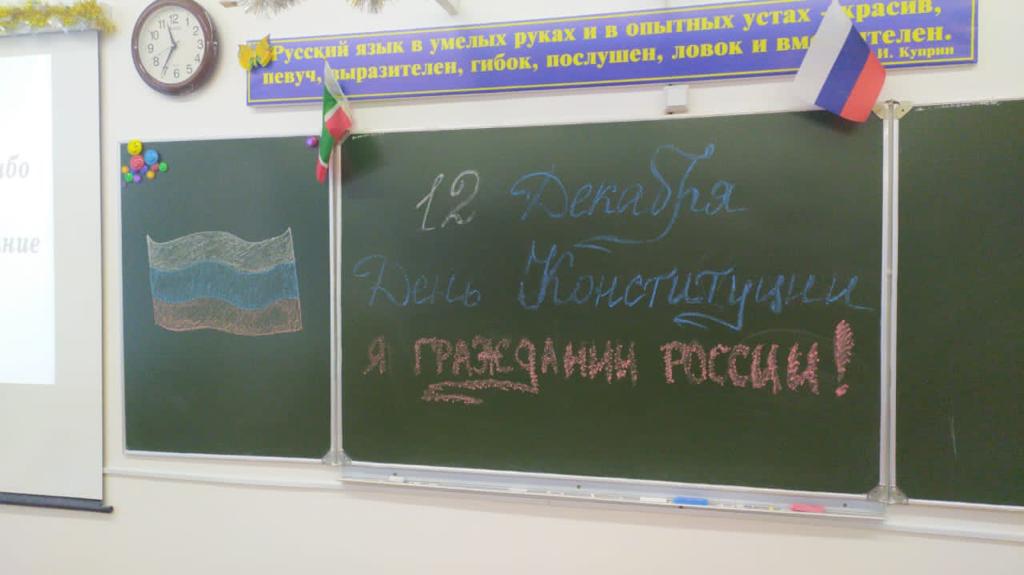 Русский язык в умелых руках и в опытных устах - красив,
певуч, выразителен, гибок, послушен, ловок и
И. Куприн
12 Декабря
День Конституции
Я ГРАЖДАНИН РОССИИ!